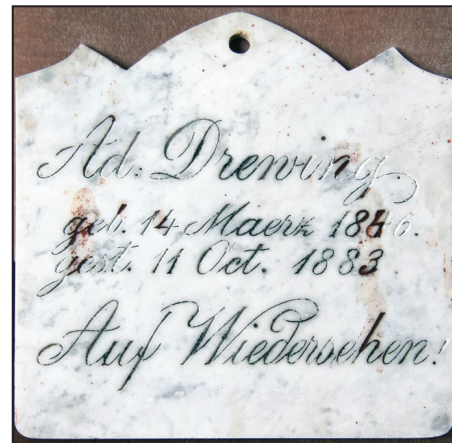 Ad. Drewing
geb. 14 Maerz 1846.
gest. 11 Oct. 1883
Auf Wiedersehen!